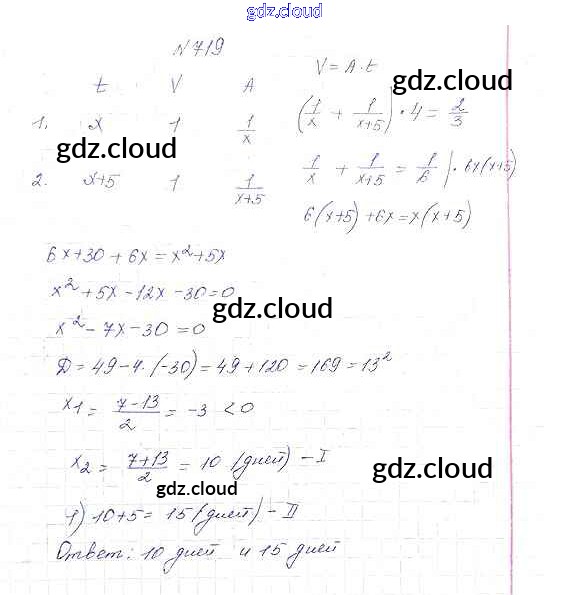 gdz.cloud
N 719
t V A
V = A · t
gdz.cloud
1. x 1 1/x
(1/x + 1/(x+5)) · 4 = 2/3
gdz.cloud
2. x+5 1 1/(x+5)
1/x + 1/(x+5) = 1/6 | · 6x(x+5)
6(x+5) + 6x = x(x+5)
6x + 30 + 6x = x² + 5x
x² + 5x - 12x - 30 = 0
gdz.cloud
x² - 7x - 30 = 0
Д = 49 - 4 · (-30) = 49 + 120 = 169 = 13²
x1 = (7-13)/2 = -3 < 0
x2 = (7+13)/2 = 10 (дней) - I
gdz.cloud
gdz.cloud
1) 10 + 5 = 15 (дней) - II
Ответ: 10 дней и 15 дней